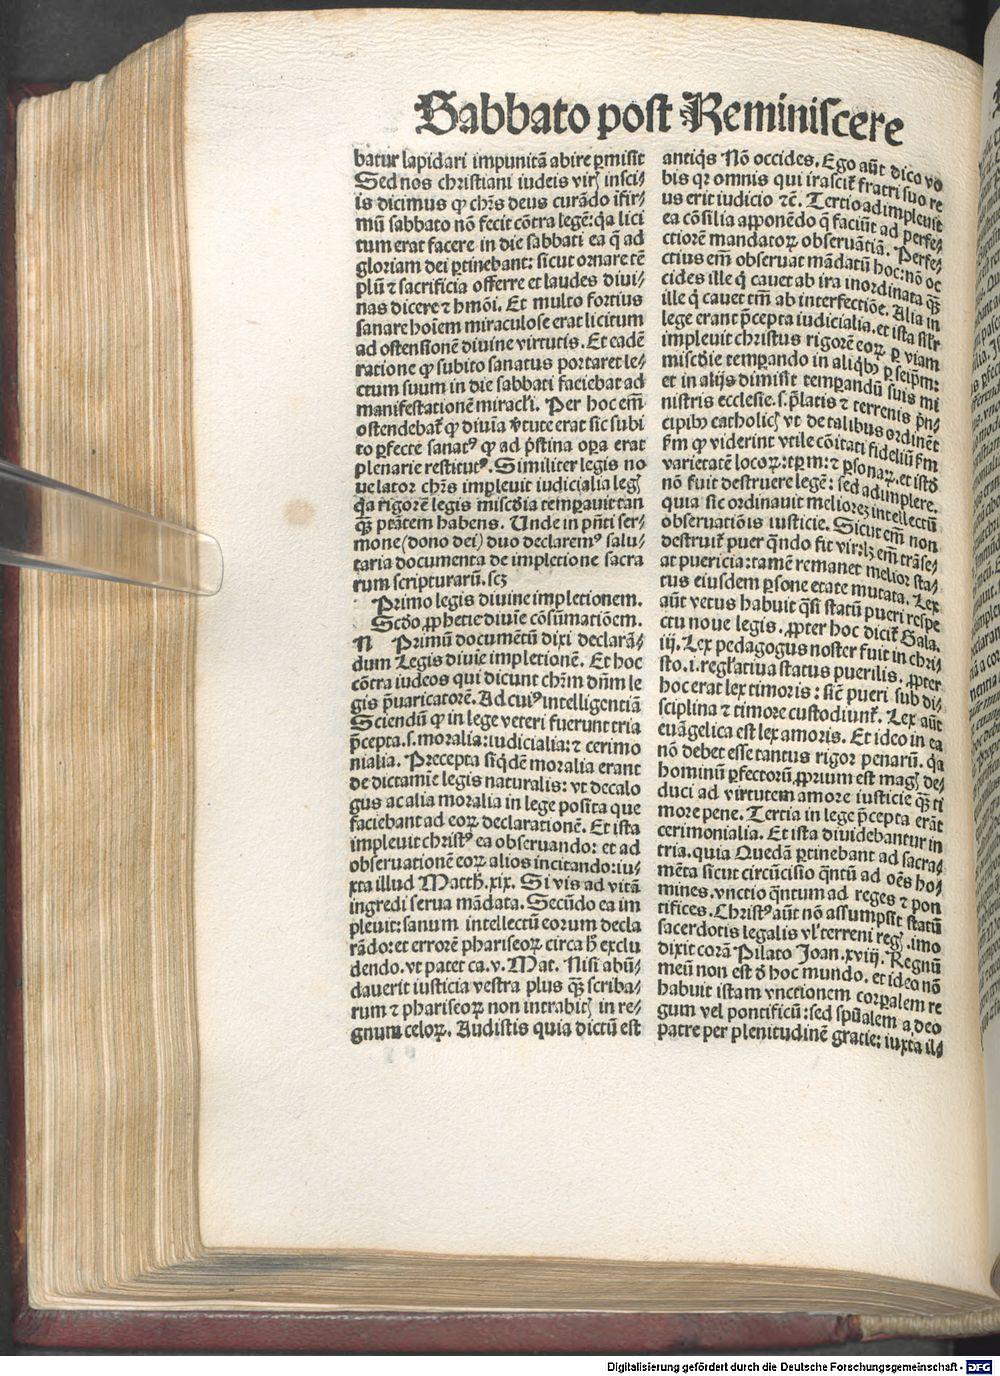 Sabbato post Reminiscere
batur lapidari impunitā abire ꝑmisit
Sed nos christiani iudeis viꝝ insci⸗
is dicimus ꝙ chr̄s deus curādo ifir⸗
mū sabbato nō fecit cōtra legē: qa lici
tum erat facere in die sabbati ea q̄ ad
gloriam dei ꝑtinebant: sicut ornare tē
plū ⁊ sacrificia offerre et laudes divi⸗
nas dicere ⁊ hmōi. Et multo fortius
sanare hoīem miraculose erat licitum
ad ostensionē divine virtutis. Et eadē
ratione ꝙ subito sanatus portaret le⸗
ctum suum in die sabbati faciebat ad
manifestationē miracl'i. Per hoc em̄
ostendebat ꝙ diuīa v̄tute erat sic subi
to ꝑfecte sanatꝰ ꝙ ad p̄stina oꝑa erat
plenarie restitutꝰ. Similiter legis no
ue lator chr̄s impleuit iudicialia leg
q̄a rigorē legis misc̄dia temꝑauit tan
qꝫ ptātem habens. Unde in pn̄ti ser⸗
mone (dono dei) duo declaremꝰ salu⸗
taria documenta de impletione sacra
rum scripturarū. scꝫ
Primo legis diuine impletionem.
Scd̄o ꝓphetie diuīe cōsūmatiōem.
N Primū documētū dixi declarā⸗
dum Legis diuīe impletionē. Et hoc
cōtra iudeos qui dicunt chr̄m dn̄m le
gis p̄uaricatorē. Ad cuiꝰ intelligentiā
Sciendū ꝙ in lege veteri fuerunt tria
p̄cepta. s. moralia: iudicialia: ⁊ cerimo
nialia. Precepta siq̄dē moralia erant
de dictamīe legis naturalis: vt decalo
gus ac alia moralia in lege posita que
faciebant ad eoꝝ declarationē. Et ista
impleuit christꝰ ea obseruando: et ad
obseruationē eoꝝ alios incitando: iu⸗
xta illud Matth̄. xix. Si vis ad vitā
ingredi serua mādata. Secūdo ea im
pleuit: sanum intellectū eorum decla
rādo: et errorē phariseoꝝ circa h̄ exclu
dendo. vt patet ca. v. Mat. Nisi abū⸗
dauerit iusticia vestra plus qꝫ scriba⸗
rum ⁊ phariseoꝝ non intrabit in re⸗
gnum celoꝝ. Audistis quia dictū est
antiq̄s Nō occides. Ego aūt dico vo
bis qꝛ omnis qui irascit̄ fratri suo re
us erit iudicio ⁊c̄. Tertio adimpleuit
ea cōsilia apponēdo q̄ faciūt ad perfe⸗
ctiorē mandatoꝝ obseruātiā. Perfe⸗
ctius em̄ obseruat mādatū hoc: nō oc
cides ille q̄ cauet ab ira inordinata qꝫ
ille q̄ cauet tm̄ ab interfectiōe. Alia in
lege erant p̄cepta iudicialia. et ista sil̄r
impleuit christus rigorē eoꝝ ꝑ viam
misc̄die temꝑando in aliq̄bꝰ ꝑ seip̄m:
et in alijs dimisit temꝑandū suis mi
nistris ecclesie. s. p̄latis ⁊ terrenis p̄n⸗
cipibꝰ catholic vt de talibus ordinēt
s̄m ꝙ viderint vtile cōitati fideliū s̄m
varietatē locoꝝ: tꝑm: ⁊ ꝑsonaꝝ. et istō
nō fuit destruere legē: sed adimplere.
quia sic ordinauit meliorez intellectū
obseruatiōis iusticie. Sicut em̄ non
destruit̄ puer q̄ndo fit vir: lꝫ em̄ trāse⸗
at puericia: tamē remanet melior sta⸗
tus eiusdem ꝑsone etate mutata. Lex
aūt vetus habuit q̄si statū pueri respe
ctu noue legis. ꝓpter hoc dicit̄ Gala.
iij. Lex pedagogus noster fuit in chri⸗
sto. i. regl'atiua status puerilis. ꝓpter
hoc erat lex timoris: sicē pueri sub di⸗
sciplina ⁊ timore custodiunt̄. Lex aūt
euāgelica est lex amoris. Et ideo in ea
nō debet esse tantus rigor penarū. q̄a
hominū ꝑfectorū ꝓprium est mag de⸗
duci ad virtutem amore iusticie qꝫ ti
more pene. Tertia in lege p̄cepta erāt
cerimonialia. Et ista diuidebantur in
tria. quia Quedā ꝑtinebant ad sacra⸗
mēta sicut circūcisio q̄ntū ad oēs ho⸗
mines. vnctio q̄ntum ad reges ⁊ pon
tifices. Christꝰ aūt nō assumpsit statū
sacerdotis legalis vl' terreni reg. imo
dixit corā Pilato Joan. xviij. Regnū
meū non est d̄ hoc mundo. et ideo nō
habuit istam vnctionem corꝑalem re
gum vel pontificū: sed spūalem a deo
patre per plenitudinē gracie: iuxta il⸗
Digitalisierung gefördert durch die Deutsche Forschungsgemeinschaft - DFG